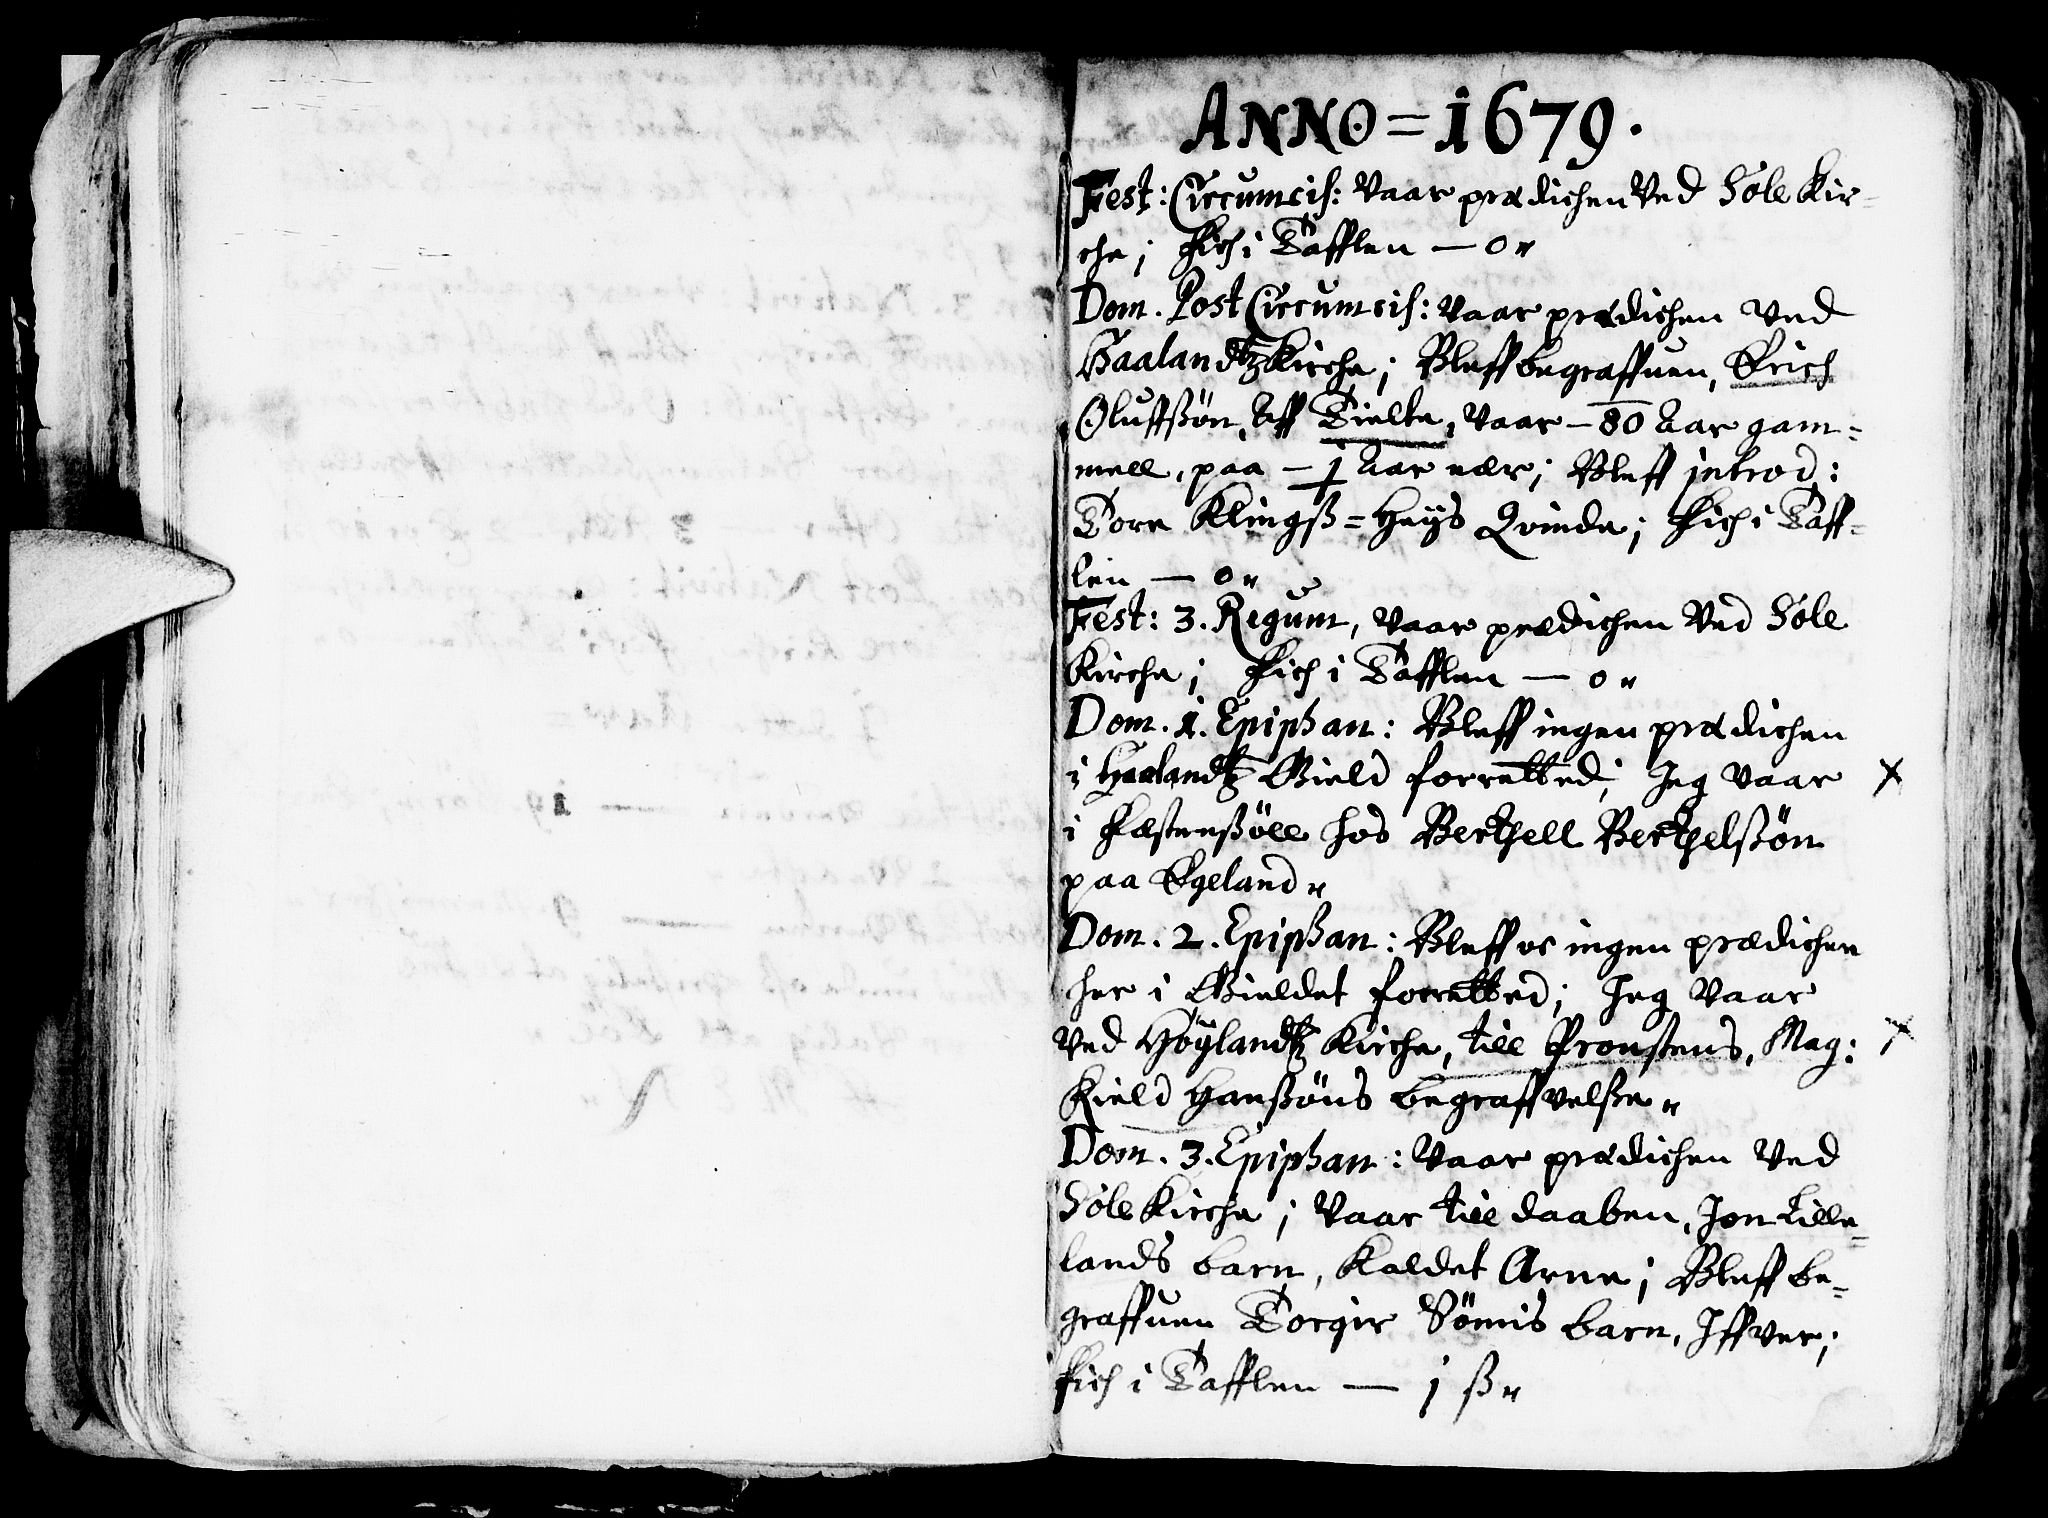 ANNO = 1679.
Fest: Circumcis: vaar prædichen ved Sole Kir=
che; fich i Tafflen — 0 "
Dom. Post Circumcis: vaar prædichen ved
Haalandtz Kirche; Bleff begraffuen, Erich
Oluffßøn, aff Tielte, vaar – 80 aar gam=
mell, paa – 1 aar nær; Bleff introd:
Tore Klingß = Heÿs Qvinde; fich i Taff=
len — 0 "
Fest: 3. Regum, vaar prædichen ved Sole
Kirche; fich i Tafflen — 0 "
Dom. 1. Epiphan: Bleff ingen prædichen
i Haalandtz Gield forretted; Jeg vaar
i festensöll hos Berthell Berthelßøn
paa Egeland "
Dom. 2. Epiphan: Bleff oc ingen prædichen
her i Gieldet forretted; Jeg vaar
ved Höÿlandtz Kirche, till Proustens, Mag:
Kield Hanßøns begraffvelße "
Dom. 3. Epiphan: vaar prædichen ved
Sole Kirche; vaar till daaben, Jon Lille=
lands barn, kaldet Arne; Bleff be=
graffuen Torgir Sömis barn, Iffver;
fich i Tafflen — 1 ß "